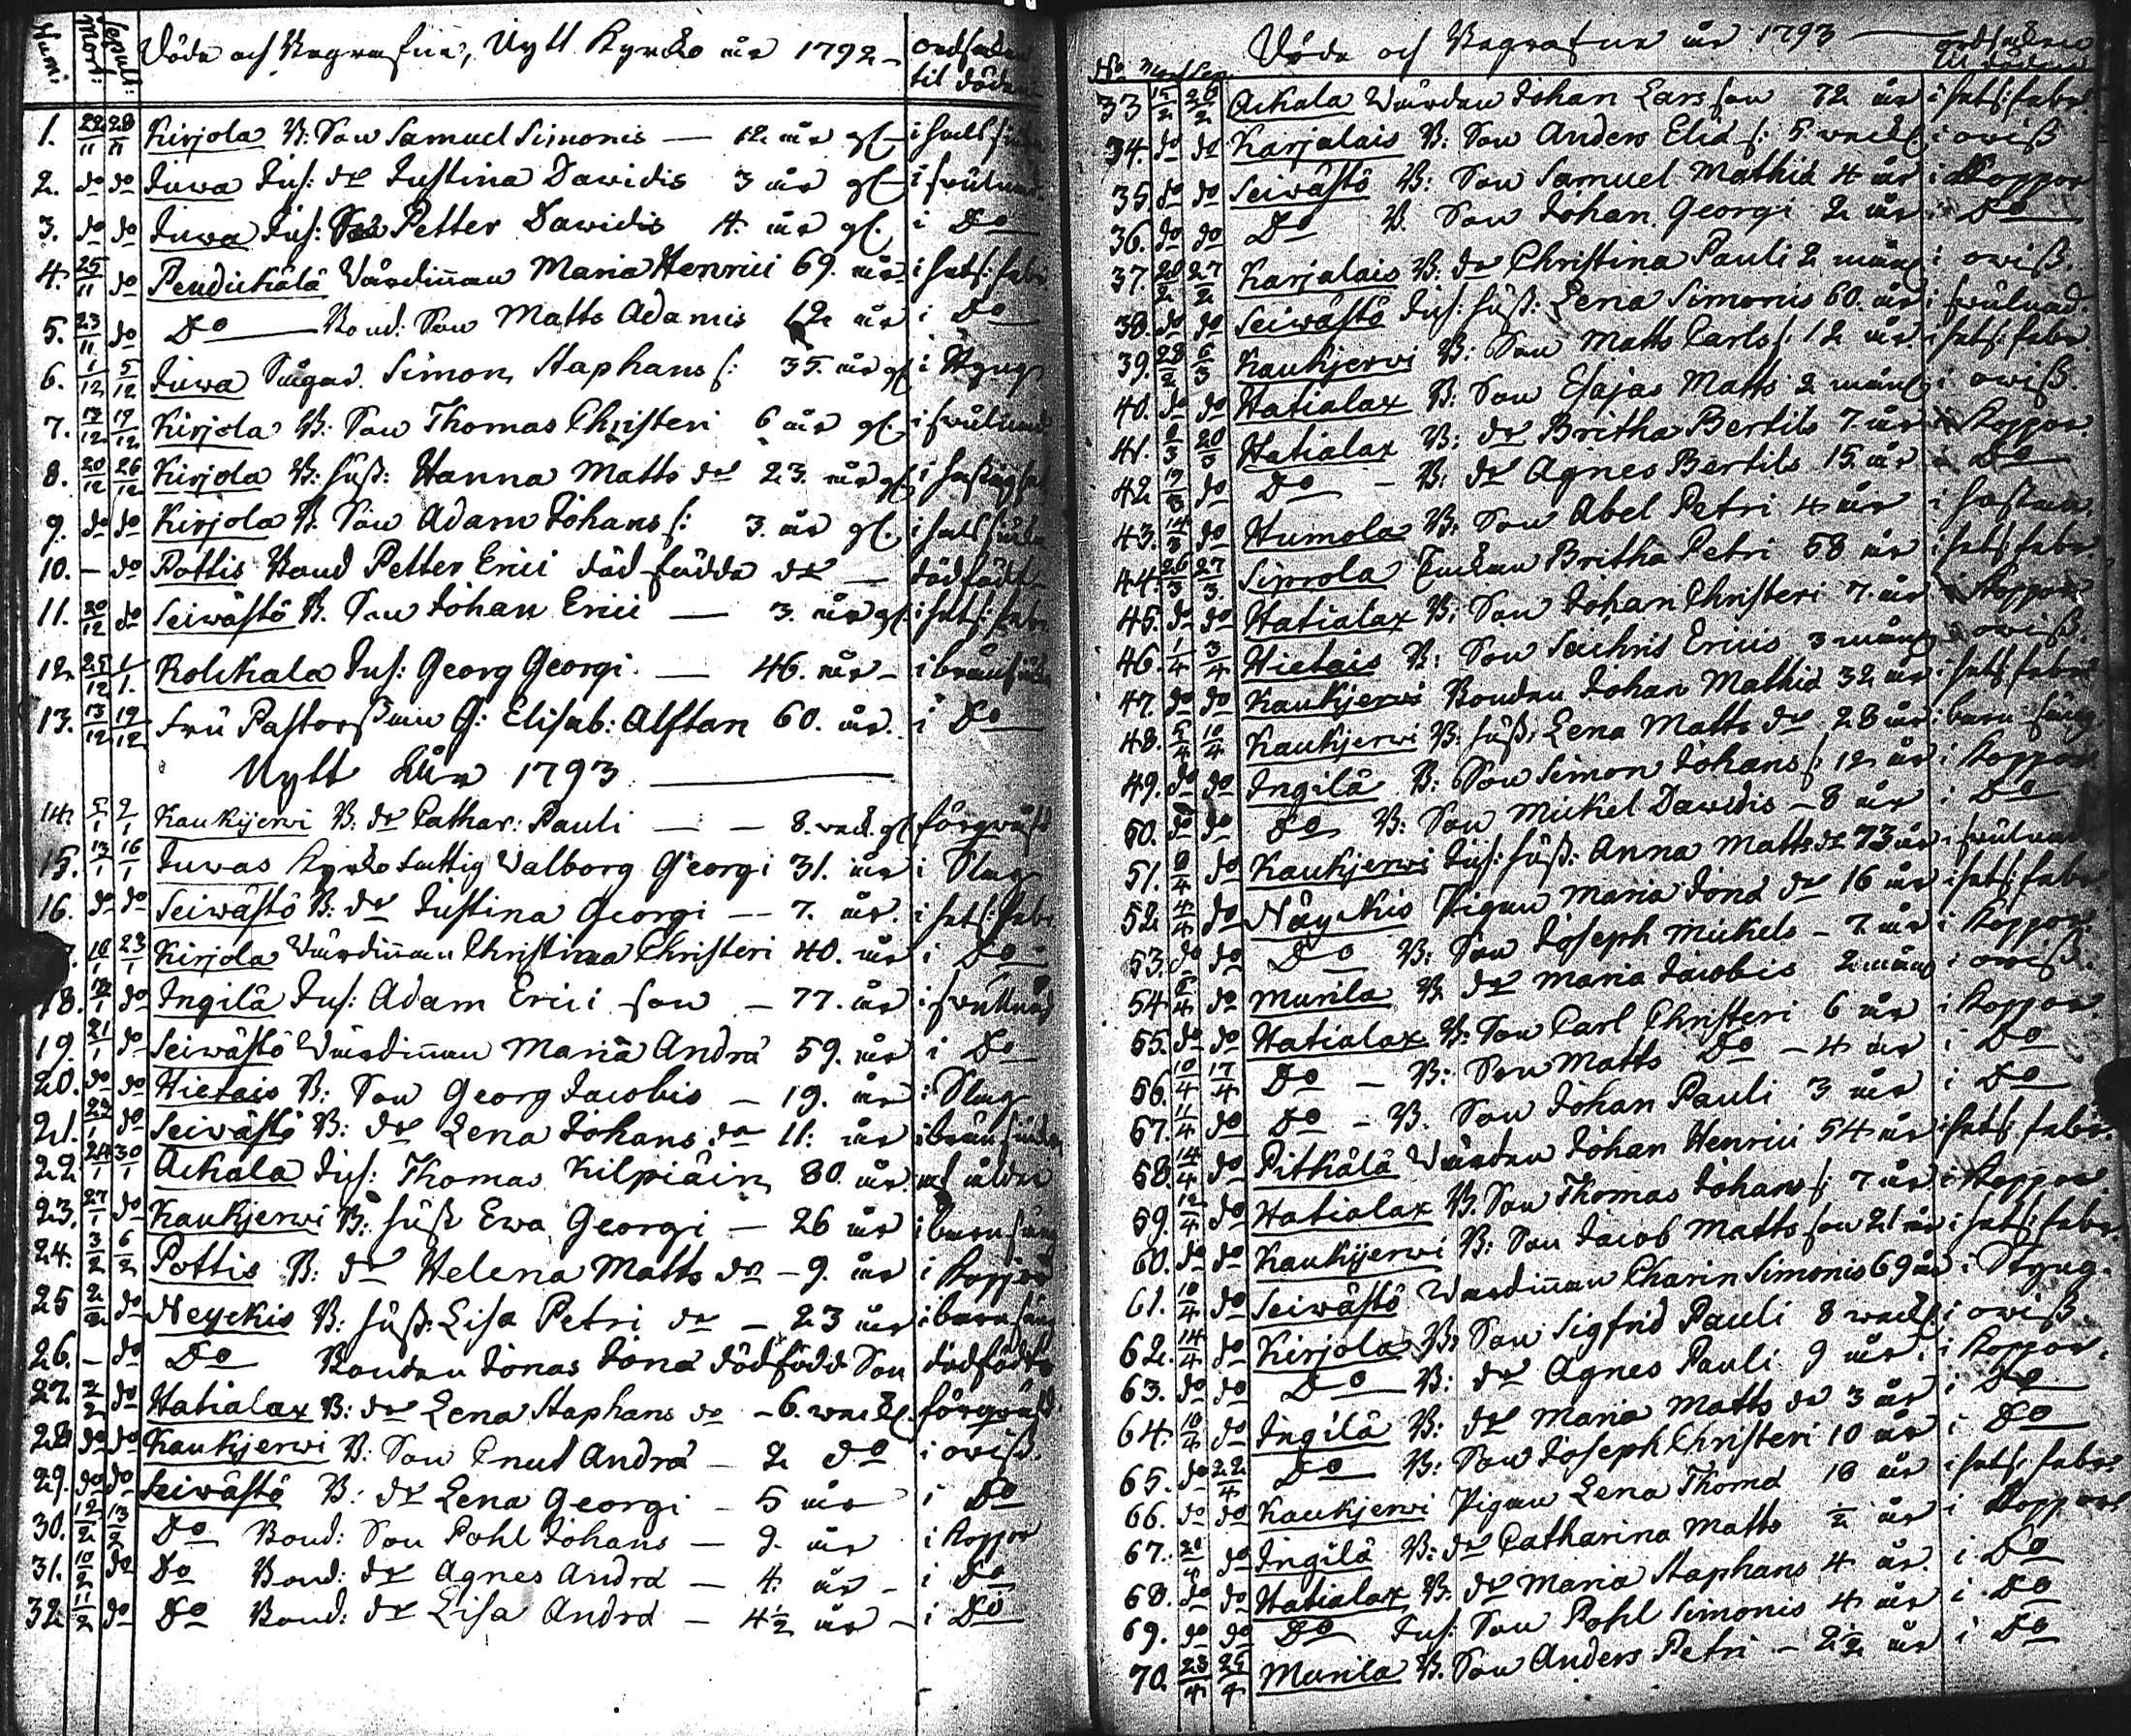 Num: mort: sepult: Döde och Begrafne, Nytt Kyrko år 1792 - ordsaken
til döden
1. 22/11 28/11 Kirjola B: Son Samuel Simonis — 12 år gl -
2. do do Juwa Inh: dr Justina Dawidis 3 år gl -
3. do do Juwa Inh: Son Petter Dawidis 4. år gl. i Do
4. 25/11 do Pendickälä Wärdinnan Maria Henrici 69. år i hets: feber
5. 23/11 do Do — Bond: Son Matts Adamis 12 år i Do
6. 1/12 5/12 Juwa Simon Staphans s: 35. år gl i Styng
7. 13/12 19/12 Kirjola B: Son Thomas Christeri 6 år gl.
8. 20/12 26/12 Kirjola B: hust: Hanna Matts dr 23. år gl
9. do do Kirjola B: Son Adam Johans s: 3. år gl.
10. - do Pottis Bond Petter Erici död födde dr — dödfödt
11. 20/12 do Seiwästö B. Son Johan Erici — 3. år gl. i hets: feber
12 25/12 1/1. Kolckala Inh: Georg Georgi. — 46. år -
13. 13/12 19/12 Fru Pastorskan G: Elisab: Alftan 60. år. i Do
Nytt Åhr 1793
14. 5/1 9/1 Kaukijerwi B: dr Cathar: Pauli — - 8. weck. gl förqwäfd
15. 13/1 16/1 Juwas Valborg Georgi 31. år i Slag
16. do do Seiwästö B: dr Justina Georgi — 7. år. i hets: feber
23/1 Kirjola Wärdinnan Christina Christeri 40. år i Do
18. do Ingilä Inh: Adam Erici son — 77. år
19. 21/1 do Seiwästö Wärdinnan Maria Andrä 59. år i Do
20. do do Hietais B: Son Georg Jacobis — 19. år i Slag
21. 23/1 do Seiwästö B: dr Lena Johans dr 11: år
22 24/1 30/1 Ackala Inh: Thomas Kilpiäin 80. år. af ålder
23. 27/1 do Kaukjerwi B: hust Ewa Georgi — 26 år i barnsäng
24. 3/2 6/2 Pottis B: dr Helena Matts dr - 9. år i Koppor
25 2/2 do Neyckis B: hust: Lisa Petri dr — 23 år i barnsäng
26. - do Do Bonden Jonas Jonä dödfödd Son dödfödt
27. 2/2 do Hatialax B: dr Lena Staphans dr - 6. weck. förqwäfd
28 do do Kaukjerwi B: Son Cnut Andrä — 2 do i owiss.
29. do do Seiwästö B: dr Lena Georgi — 5 år i Do
30. 12/2 13/2 Do Bond: Son Pohl Johans — 9. år i Koppor
31. 10/2 do Do Bond: dr Agnes Andrä — 4. år - i Do
32 11/2 do Do Bond: dr Lisa Andrä — 4½ år - i Do
No Mort Sep. Döde och Begrafne år 1793 — ordsaken
til döden
33 15/2 20/2 Ackala Wärden Johan Lars son 72 år i hets: feber
34. do do Karjalais B: Son Anders Eliä s: 5 weck. i owiss
35. do do Seiwästö B: Son Samuel Mathiä 4 år i Koppor
36. do do Do B. Son Johan Georgi 2 år i Do
37. 20/2 27/2 Karjalais B: dr Christina Pauli 2 mån i owiss.
38. do do Seiwästö Inh: hust: Lena Simonis 60. år
39. 28/2 6/3 Kaukjerwi B: Son Matts Carls s: 12 år i hets: feber
40. do do Hatialax B: Son Esajas Matts 2 mån i owiss.
41. 9/3 20/3 Hatialax B: dr Britha Bertils 7. år i Koppor.
42 9/3 do Do — B: dr Agnes Bertils 15. år i Do
43. 14/3 do Humola B: Son Abel Petri 4 år
44. 26/3 27/3. Siprola Enckan Britha Petri 58 år i hets: feber
45. do do Hatialax B: Son Johan Christeri 7. år i Koppor
46. 1/4 3/4 Hietais B: Son Erius 3 mån i owiss.
47. do do Kaukjerwi Bonden Johan Mathiä 32 år i hets: feber
48. 5/4 10/4 Kaukjerwi B: hust: Lena Matts dr 28 år i barn säng
49. do do Ingilä B: Son Simon Johans s: 12 år i Koppor
50. do do Do B: Son Mickel Dawidis - 8 år i Do
51. 8/4 do Kaukjerwi Inh: hust: Anna Matts dr 73 år
52 4/4 do Näyckis Pigan Maria Jonä dr 16 år i hets: feber
53. do do Do B: Son Joseph Mickels — 7 år i Koppor
54 6/4 do Murila B: dr Maria Jacobis 2 mån i owiss.
55. do do Hatialax B: Son Carl Christeri 6 år i Koppor.
56. 10/4 17/4 Do — B: Son Matts Do — 4 år i Do
57. 11/4 do Do — B. Son Johan Pauli 3 år i Do
58. 14/4 do Pitkälä Wärden Johan Henrici 54 år i hets: feber.
59. 12/4 do Hatialax B. Son Thomas Johans s: 7 år i Koppor.
60. do do Kaukijerwi B: Son Jacob Matts son 21 år i hets: feber
61. 10/4 do Seiwästö Wärdinnan Charin Simonis 69 år i Styng.
62. 14/4 do Kirjola B: Son Sigfrid Pauli 8 weck. i owiss.
63. do do Do B: dr Agnes Pauli 9 år. i Koppor.
64. 10/4 do Ingilä B: dr Maria Matts dr 3 år i Do
65. do 22/4 Do B: Son Joseph Christeri 10 år i Do
66. do do Kaukjerwi Pigan Lena Thomä 18 år i hets: feber
67. 20/4 do Ingilä B: dr Catharina Matts ½ år i Koppor
68. do do Hatialax B: dr Maria Staphans 4 år. i Do
69. do do Do Inh: Son Pohl Simonis 4 år i Do
70. 23/4 25/4 Murila B. Son Anders Petri — 2½ år i Do